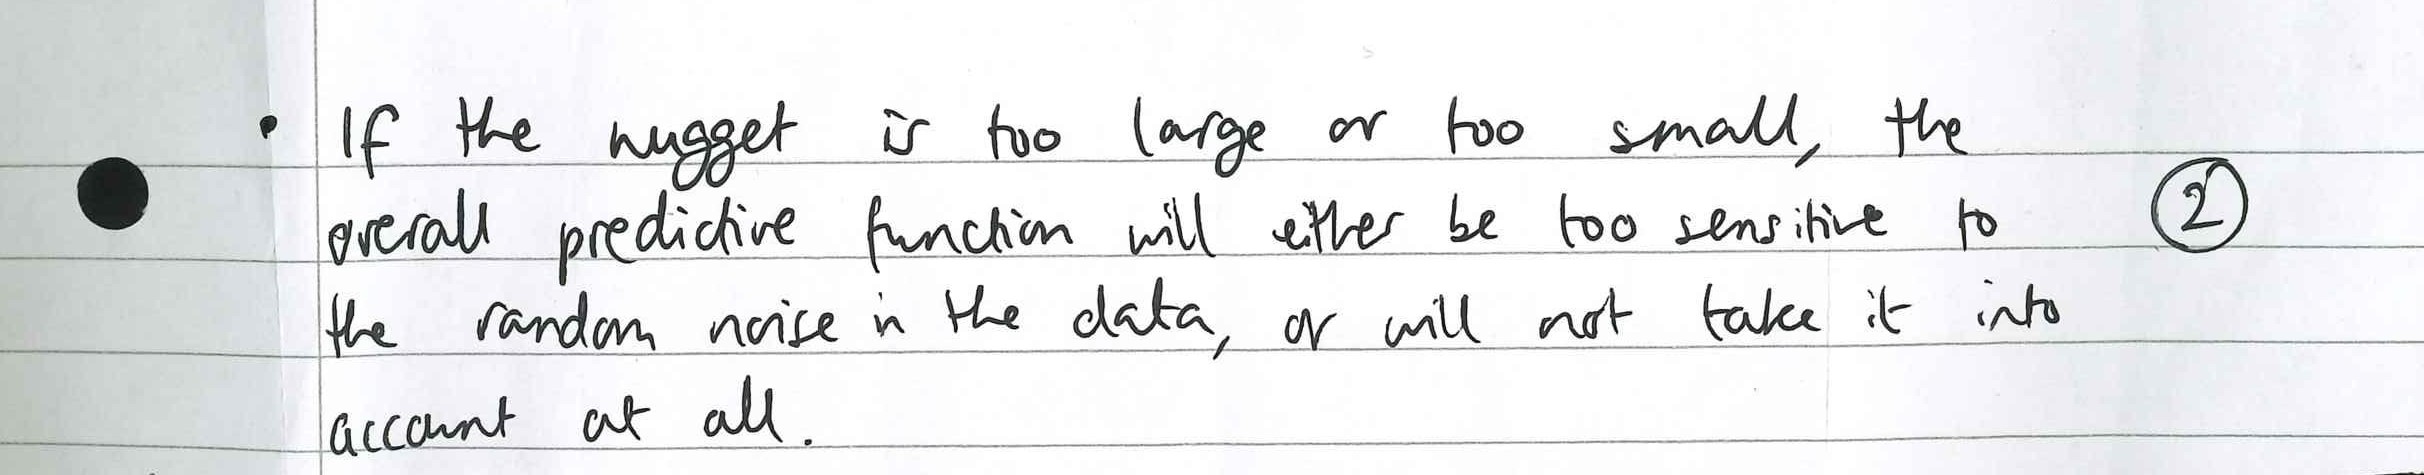 • If the nugget is too large or too small, the
overall predictive function will either be too sensitive to ②
the random noise in the data, or will not take it into
account at all.